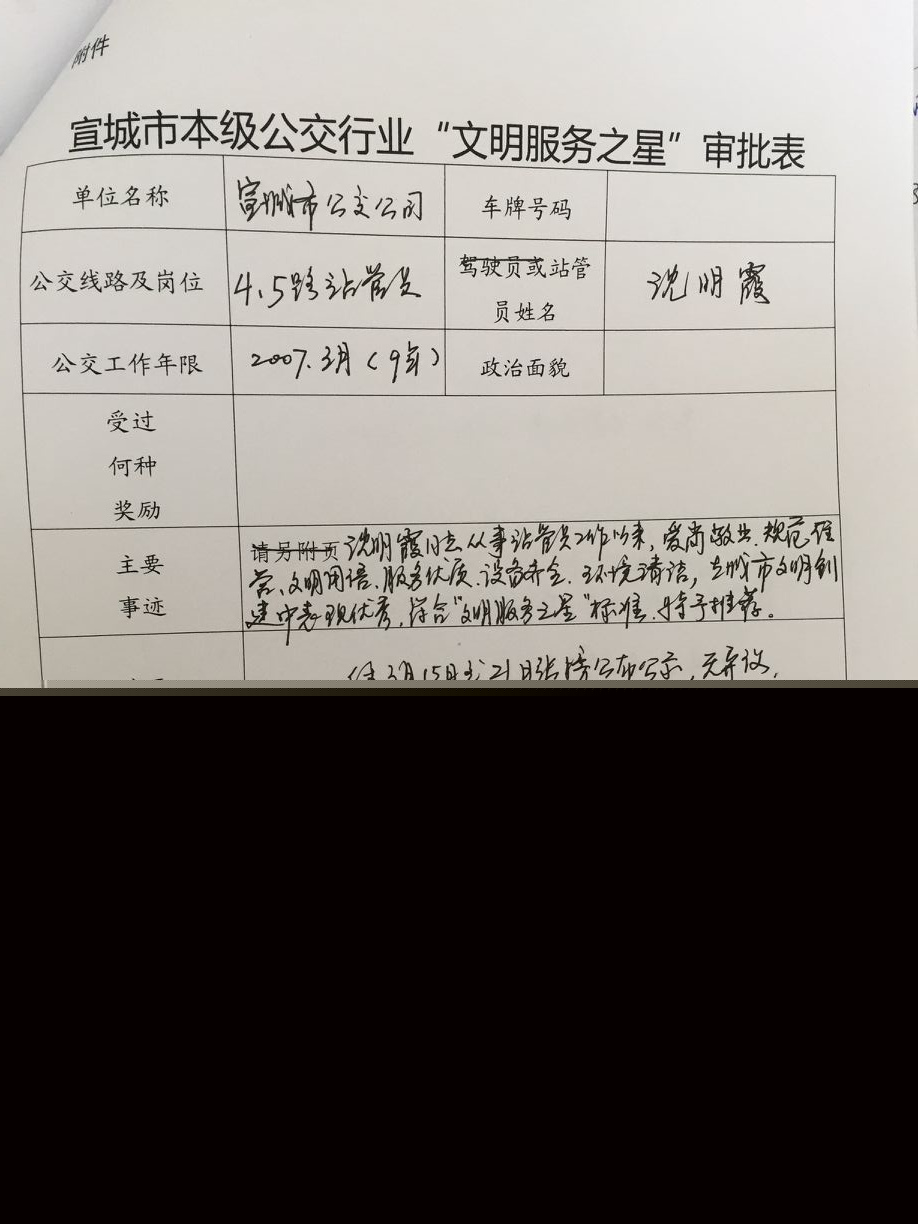 附件
宣城市本级公交行业“文明服务之星”审批表
单位名称 宣城市公交公司 车牌号码
公交线路及岗位 4、5路站管员 驾驶员或站管
员姓名 沈明霞
公交工作年限 2007.3月(9年) 政治面貌
受过
何种
奖励
主要
事迹
请另附页 沈明霞同志从事站管员工作以来，爱岗敬业、规范经
营、文明用语、服务优质、设备齐全、环境清洁，在城市文明创
建中表现优秀，符合“文明服务之星”标准，特予推荐。
经3月15日至21日张榜公布公示，无异议，